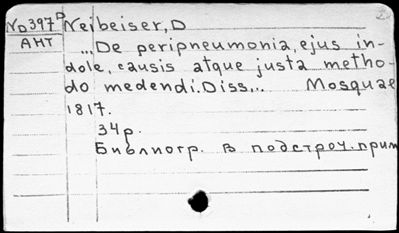 ND397D Neibeiser, D
АНТ
...De peripneumonia, ejus in-
dole, causis atque justa metho-
do medendi. Diss... Mosquae
1817.
34р.
Библиогр. в подстроч. прим